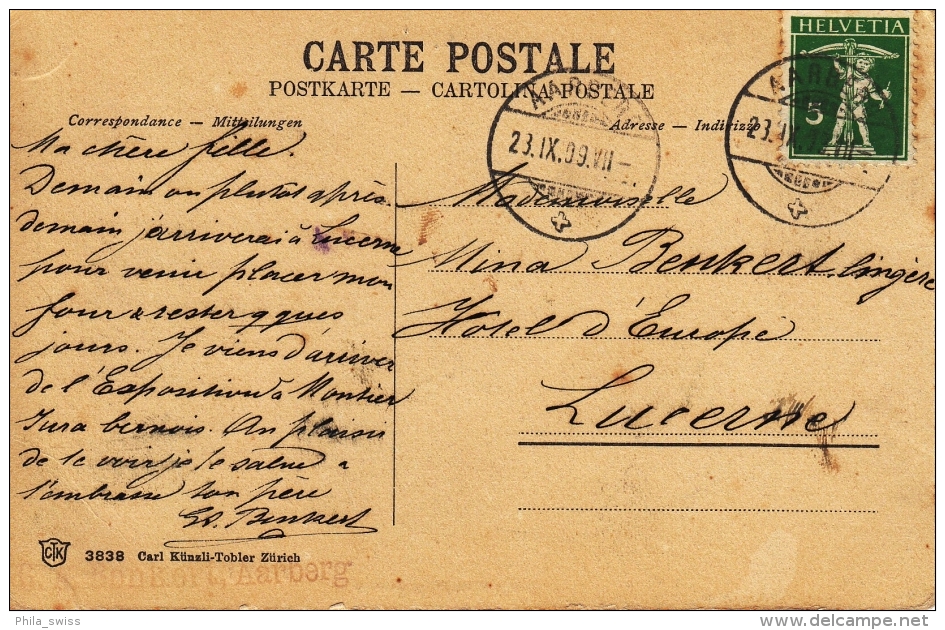 CARTE POSTALE
POSTKARTE — CARTOLINA POSTALE
Correspondance — Mitteilungen
Adresse — Indirizzo
HELVETIA
5
AARBERG
23.IX.09.VII-
AARB
23.IX.
Ma chère fille.
Demain ou plutot après
demain j'arriverai à Lucerne
pour venir placer mon
four & rester qques
jours. Je viens d'arriver
de l'Exposition à Moutier
Jura bernois. Au plaisir
de te voir je te salue &
t'embrasse ton père
Ed. Benkert
Mademoiselle
Mina Benkert. lingère
Hotel d'Europe
Lucerne
CTK
3838 Carl Künzli-Tobler Zürich
Benkert, Aarberg
Phila_swiss
delcampe.net